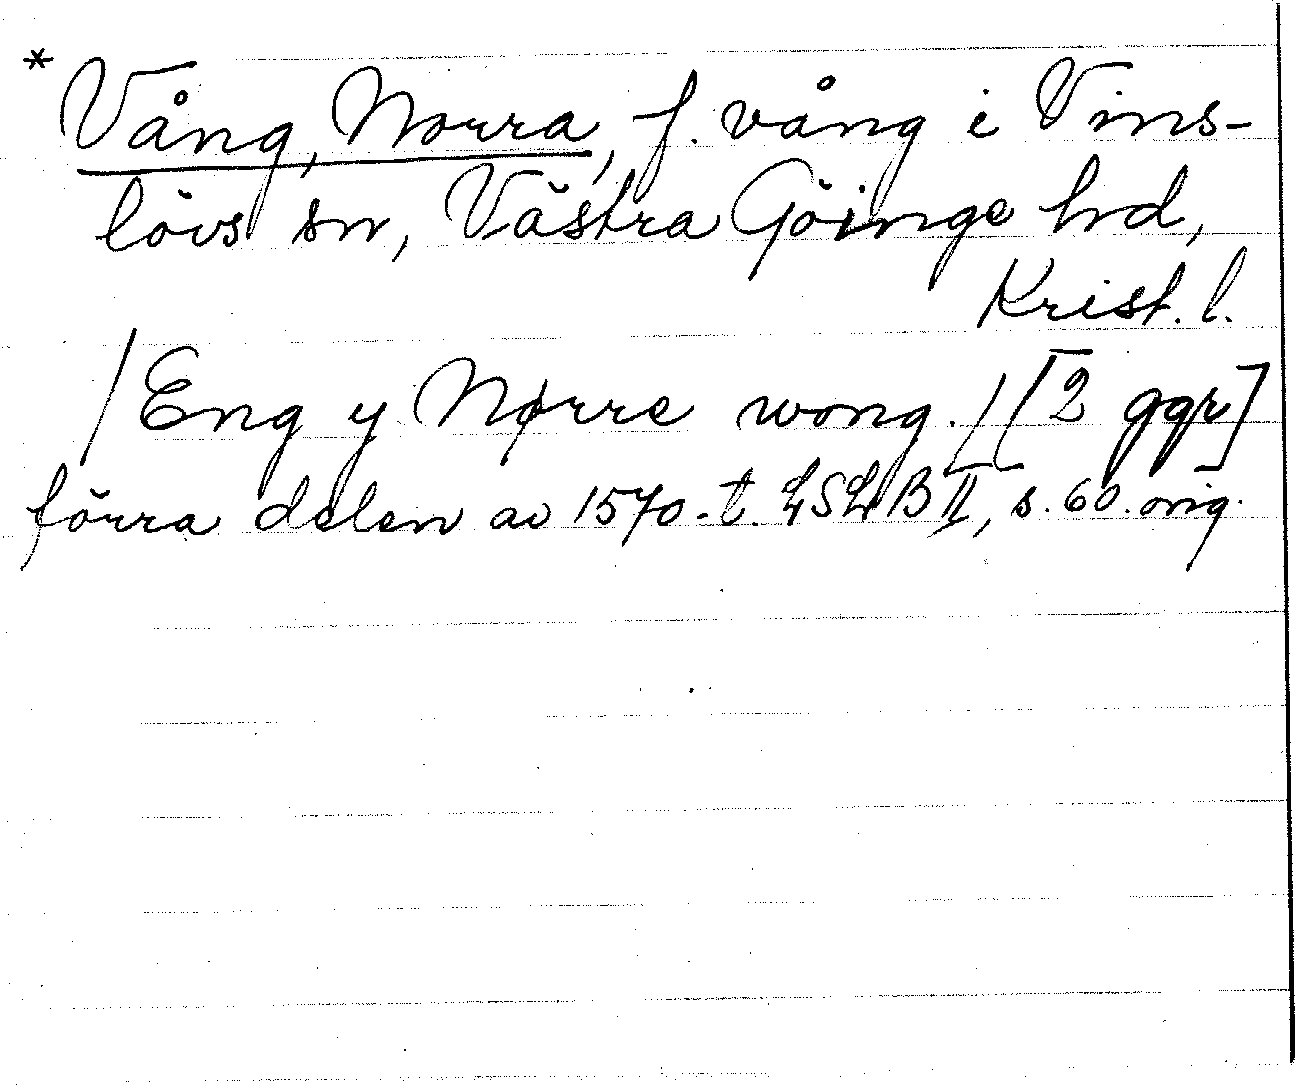 * Vång, Norra, f. vång i Vins-
lövs sn, Västra Göinge hd,
Krist. l.
/Eng y Nørre wong./ [2 ggr]
förra delen av 1570-t. LSLB II, s. 60. orig.